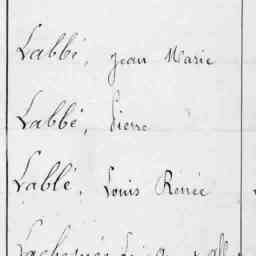 Labbé, Jean Marie
Labbé, Pierre
Lablé, Louis Renée